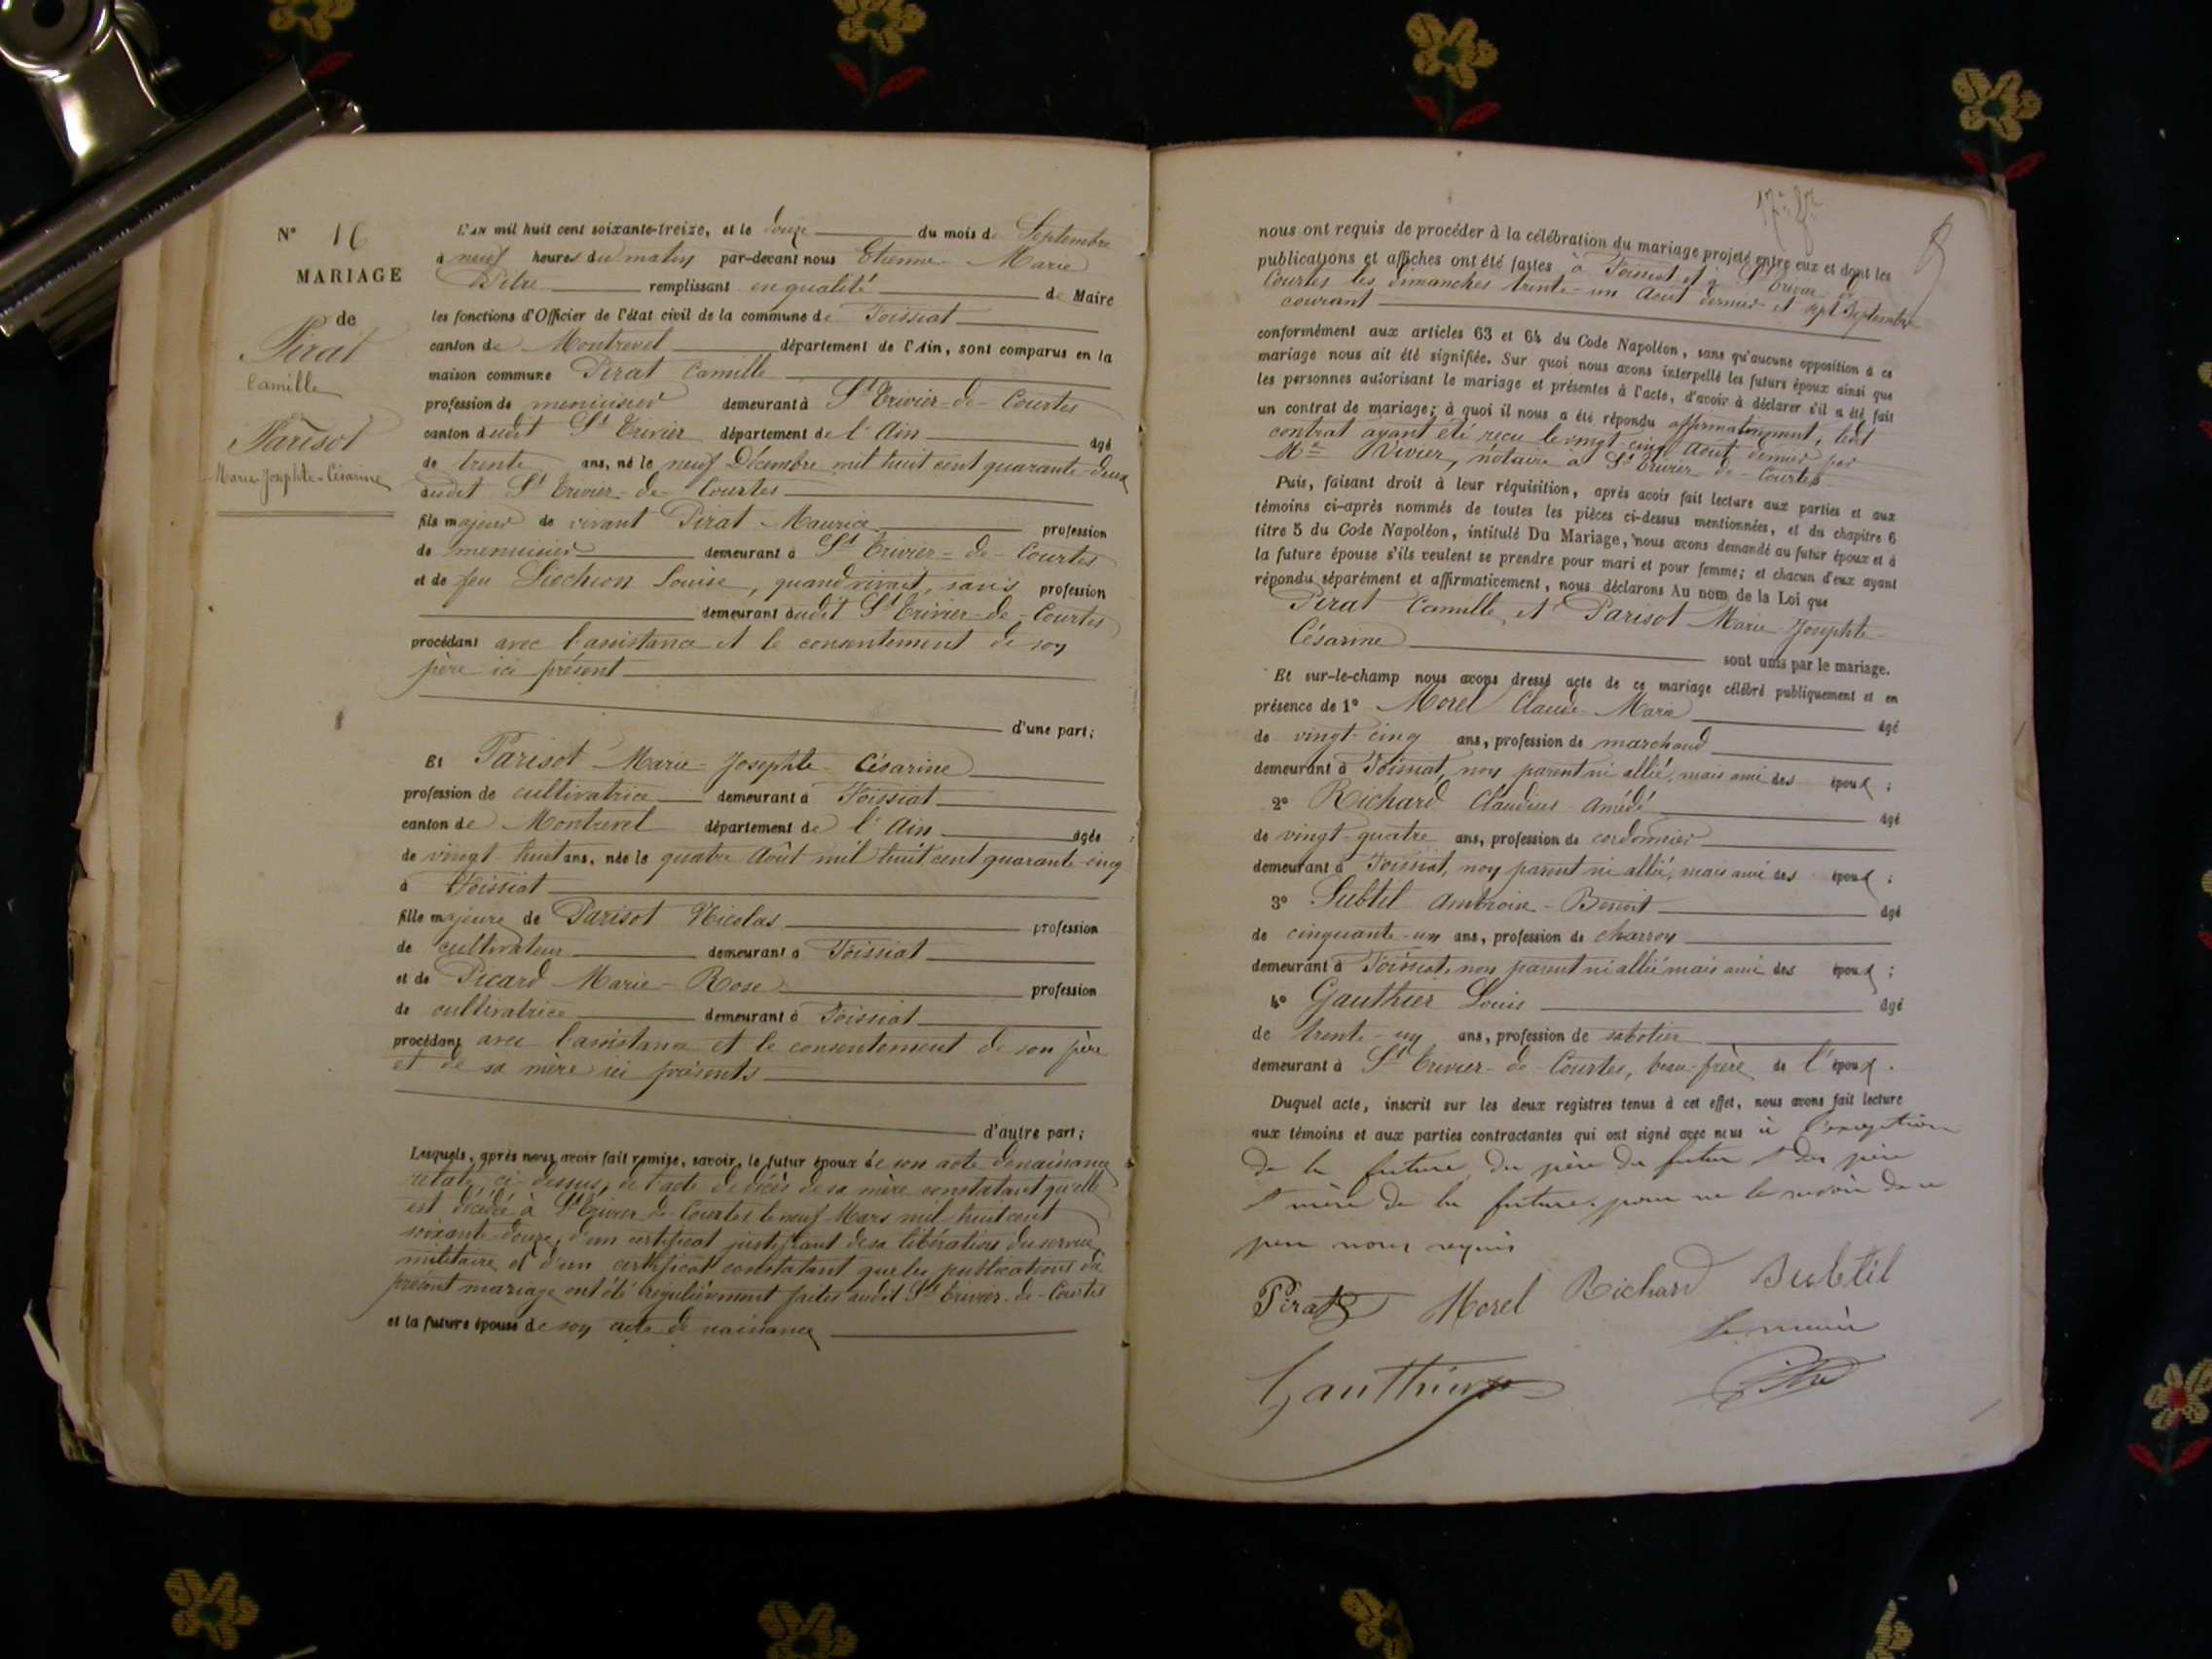 N° 16
MARIAGE
de
Pirat
Camille
Parisot
Marie-Josephte-Césarine
L'AN mil huit cent soixante-treize, et le douze du mois de Septembre
à neuf heures du matin par-devant nous Etienne-Marie
Pitre remplissant en qualité de Maire
les fonctions d'Officier de l'état civil de la commune de Foissiat
canton de Montrevel département de l'Ain, sont comparus en la
maison commune Pirat Camille
profession de menuisier demeurant à St Trivier-de-Courtes
canton dudit St Trivier département de l'Ain âgé
de trente ans, né le neuf Décembre mil huit cent quarante-deux
audit St Trivier-de-Courtes
fils majeur de vivant Pirat Maurice profession
de menuisier demeurant à St Trivier-de-Courtes
et de feu Louise, quand vivait, sans profession
demeurant audit St Trivier-de-Courtes
procédant avec l'assistance et le consentement de son
père ici présent
d'une part;
Et Parisot Marie-Josephte-Césarine
profession de cultivatrice demeurant à Foissiat
canton de Montrevel département de l'Ain âgée
de vingt-huit ans, née le quatre Août mil huit cent quarante-cinq
à Foissiat
fille majeure de Parisot Nicolas profession
de cultivateur demeurant à Foissiat
et de Picard Marie-Rose profession
de cultivatrice demeurant à Foissiat
procédant avec l'assistance et le consentement de son père
et de sa mère ici présents
d'autre part;
Lesquels, après nous avoir fait remise, savoir, le futur époux de son acte de naissance
relaté ci-dessus, de l'acte de décès de sa mère constatant qu'elle
est décédée à St Trivier-de-Courtes le neuf Mars mil huit cent
soixante-douze, d'un certificat justifiant de sa libération du service
militaire et d'un certificat constatant que les publications du
présent mariage ont été régulièrement faites audit St Trivier-de-Courtes
et la future épouse de son acte de naissance
nous ont requis de procéder à la célébration du mariage projeté entre eux et dont les
publications et affiches ont été faites à Foissiat et à St Trivier-de-
Courtes les dimanches trente-un Août dernier et sept Septembre
courant
conformément aux articles 63 et 64 du Code Napoléon, sans qu'aucune opposition à ce
mariage nous ait été signifiée. Sur quoi nous avons interpellé les futurs époux ainsi que
les personnes autorisant le mariage et présentes à l'acte, d'avoir à déclarer s'il a été fait
un contrat de mariage; à quoi il nous a été répondu affirmativement, ledit
contrat ayant été reçu le vingt-cinq Août dernier par
Me Vivier, notaire à St Trivier-de-Courtes
Puis, faisant droit à leur réquisition, après avoir fait lecture aux parties et aux
témoins ci-après nommés de toutes les pièces ci-dessus mentionnées, et du chapitre 6
titre 5 du Code Napoléon, intitulé Du Mariage, nous avons demandé au futur époux et à
la future épouse s'ils veulent se prendre pour mari et pour femme; et chacun d'eux ayant
répondu séparément et affirmativement, nous déclarons Au nom de la Loi que
Pirat Camille et Parisot Marie-Josephte-
Césarine
sont unis par le mariage.
Et sur-le-champ nous avons dressé acte de ce mariage célébré publiquement et en
présence de 1° Morel Claude-Marie âgé
de vingt-cinq ans, profession de marchand
demeurant à Foissiat, non parent ni allié, mais ami des époux;
2° Richard Claudius-Amédé âgé
de vingt-quatre ans, profession de cordonnier
demeurant à Foissiat, non parent ni allié, mais ami des époux;
3° Subtil Ambroise-Benoit âgé
de cinquante-un ans, profession de charron
demeurant à Foissiat, non parent ni allié mais ami des époux;
4° Gauthier Louis âgé
de trente-un ans, profession de sabotier
demeurant à St Trivier-de-Courtes, beau-frère de l'époux.
Duquel acte, inscrit sur les deux registres tenus à cet effet, nous avons fait lecture
aux témoins et aux parties contractantes qui ont signé avec nous à l'exception
de la future, du père du futur et des père
et mère de la future, pour ne le savoir de ce
nous requis
Pirat Morel Richard Subtil
Le maire
Gauthier Pitre